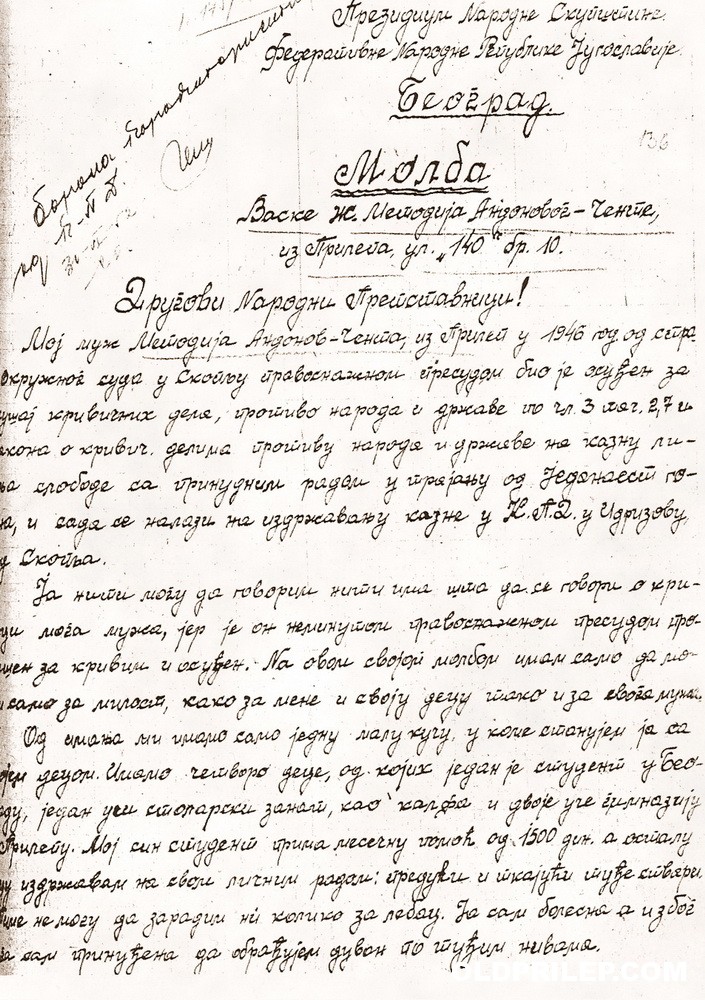 Президиум Народне Скупштине
Федеративне Народне Републике Југославије
Београд.
136
Молба
Васке ж. Методија Андоновог-Ченте,
из Прилепа, ул. „140" бр. 10.
Другови Народни Претставници!
Мој муж Методија Андонов-Чента, из Прилеп у 1946 год. од стра-
Окружног суда у Скопљу правоснажном пресудом био је осуђен за
кривичних дела, противо народа и државе по чл. 3 тач. 2, 7 и
закона о кривич. делима противу народа и државе на казну ли-
слободе са принудним радом у трајању од Једанаест го-
и сада се налази на издржавању казне у К.П.Д. у Идризову,
Скопља.
Ја нити могу да говорим нити има шта да се говори о кри-
мога мужа, јер је он неминутом правоснажном пресудом про-
за кривим и осуђен. На овом својом молбом имам само да мо-
само за милост, како за мене и своју децу тако и за свога мужа.
Од имања ми имамо само једну малу кућу, у коме станујем ја са
децом. Имамо четворо деце, од којих један је студент у Бео-
један учи столарски занат, као калфа и двоје уче гимназију
Прилепу. Мој син студент прима месечну помоћ од 1500 дин. а осталу
издржавам на свом личним радом: предући и ткајући туђе ствари
не могу да зарадим ни колико за лебац. Ја сам болесна а и због
сам принуђена да обрађујем дуван по туђим нивама.
OLDPRILEP.COM